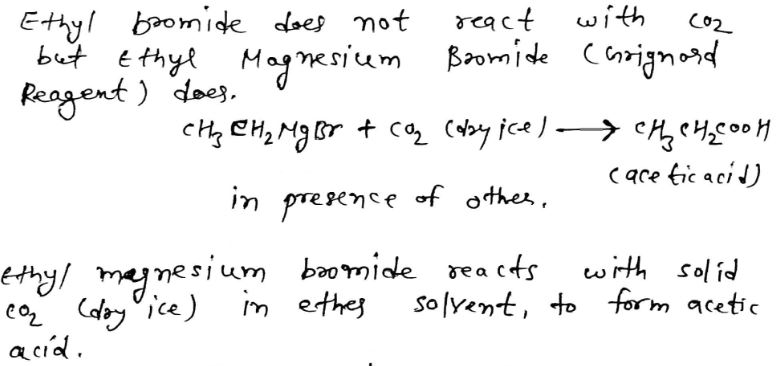 Ethyl bromide does not react with CO2
but Ethyl Magnesium Bromide (Grignard
Reagent) does.
CH3 CH2 MgBr + CO2 (dry ice) ⟶ CH3 CH2COOH
(acetic acid)
in presence of other.
ethyl magnesium bromide reacts with solid
CO2 (dry ice) in ether solvent, to form acetic
acid.